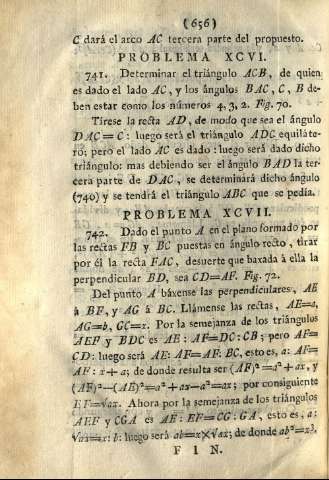 (656)
C dará el arco AC tercera parte del propuesto.
PROBLEMA XCVI.
741. Determinar el triángulo ACB, de quien
es dado el lado AC, y los ángulos BAC, C, B de-
ben estar como los números 4, 3, 2. Fig. 70.
Tírese la recta AD, de modo que sea el ángulo
DAC=C: luego será el triángulo ADC equiláte-
ro; pero el lado AC es dado: luego será dado dicho
triángulo: mas debiendo ser el ángulo BAD la ter-
cera parte de DAC, se determinará dicho ángulo
(740) y se tendrá el triángulo ABC que se pedía.
PROBLEMA XCVII.
742. Dado el punto A en el plano formado por
las rectas FB y BC puestas en ángulo recto, tirar
por él la recta FAC, desuerte que baxada á ella la
perpendicular BD, sea CD=AF. Fig. 72.
Del punto A báxense las perpendiculares, AE
á BF, y AG á BC. Llámense las rectas, AE=a,
AG=b, GC=x. Por la semejanza de los triángulos
AEF y BDC es AE: AF=DC:CB; pero AF=
CD: luego será AE: AF=AF: BC, esto es, a: AF=
AF: x+a; de donde resulta ser (AF)²=a²+ax, y
(AF)²-(AE)²=a²+ax-a²=ax; por consiguiente
EF=√ax. Ahora por la semejanza de los triángulos
AEF y CGA es AE: EF=CG: GA, esto es, a:
√ax=x: b: luego será ab=x×√ax; de donde ab²=x³.
FIN.